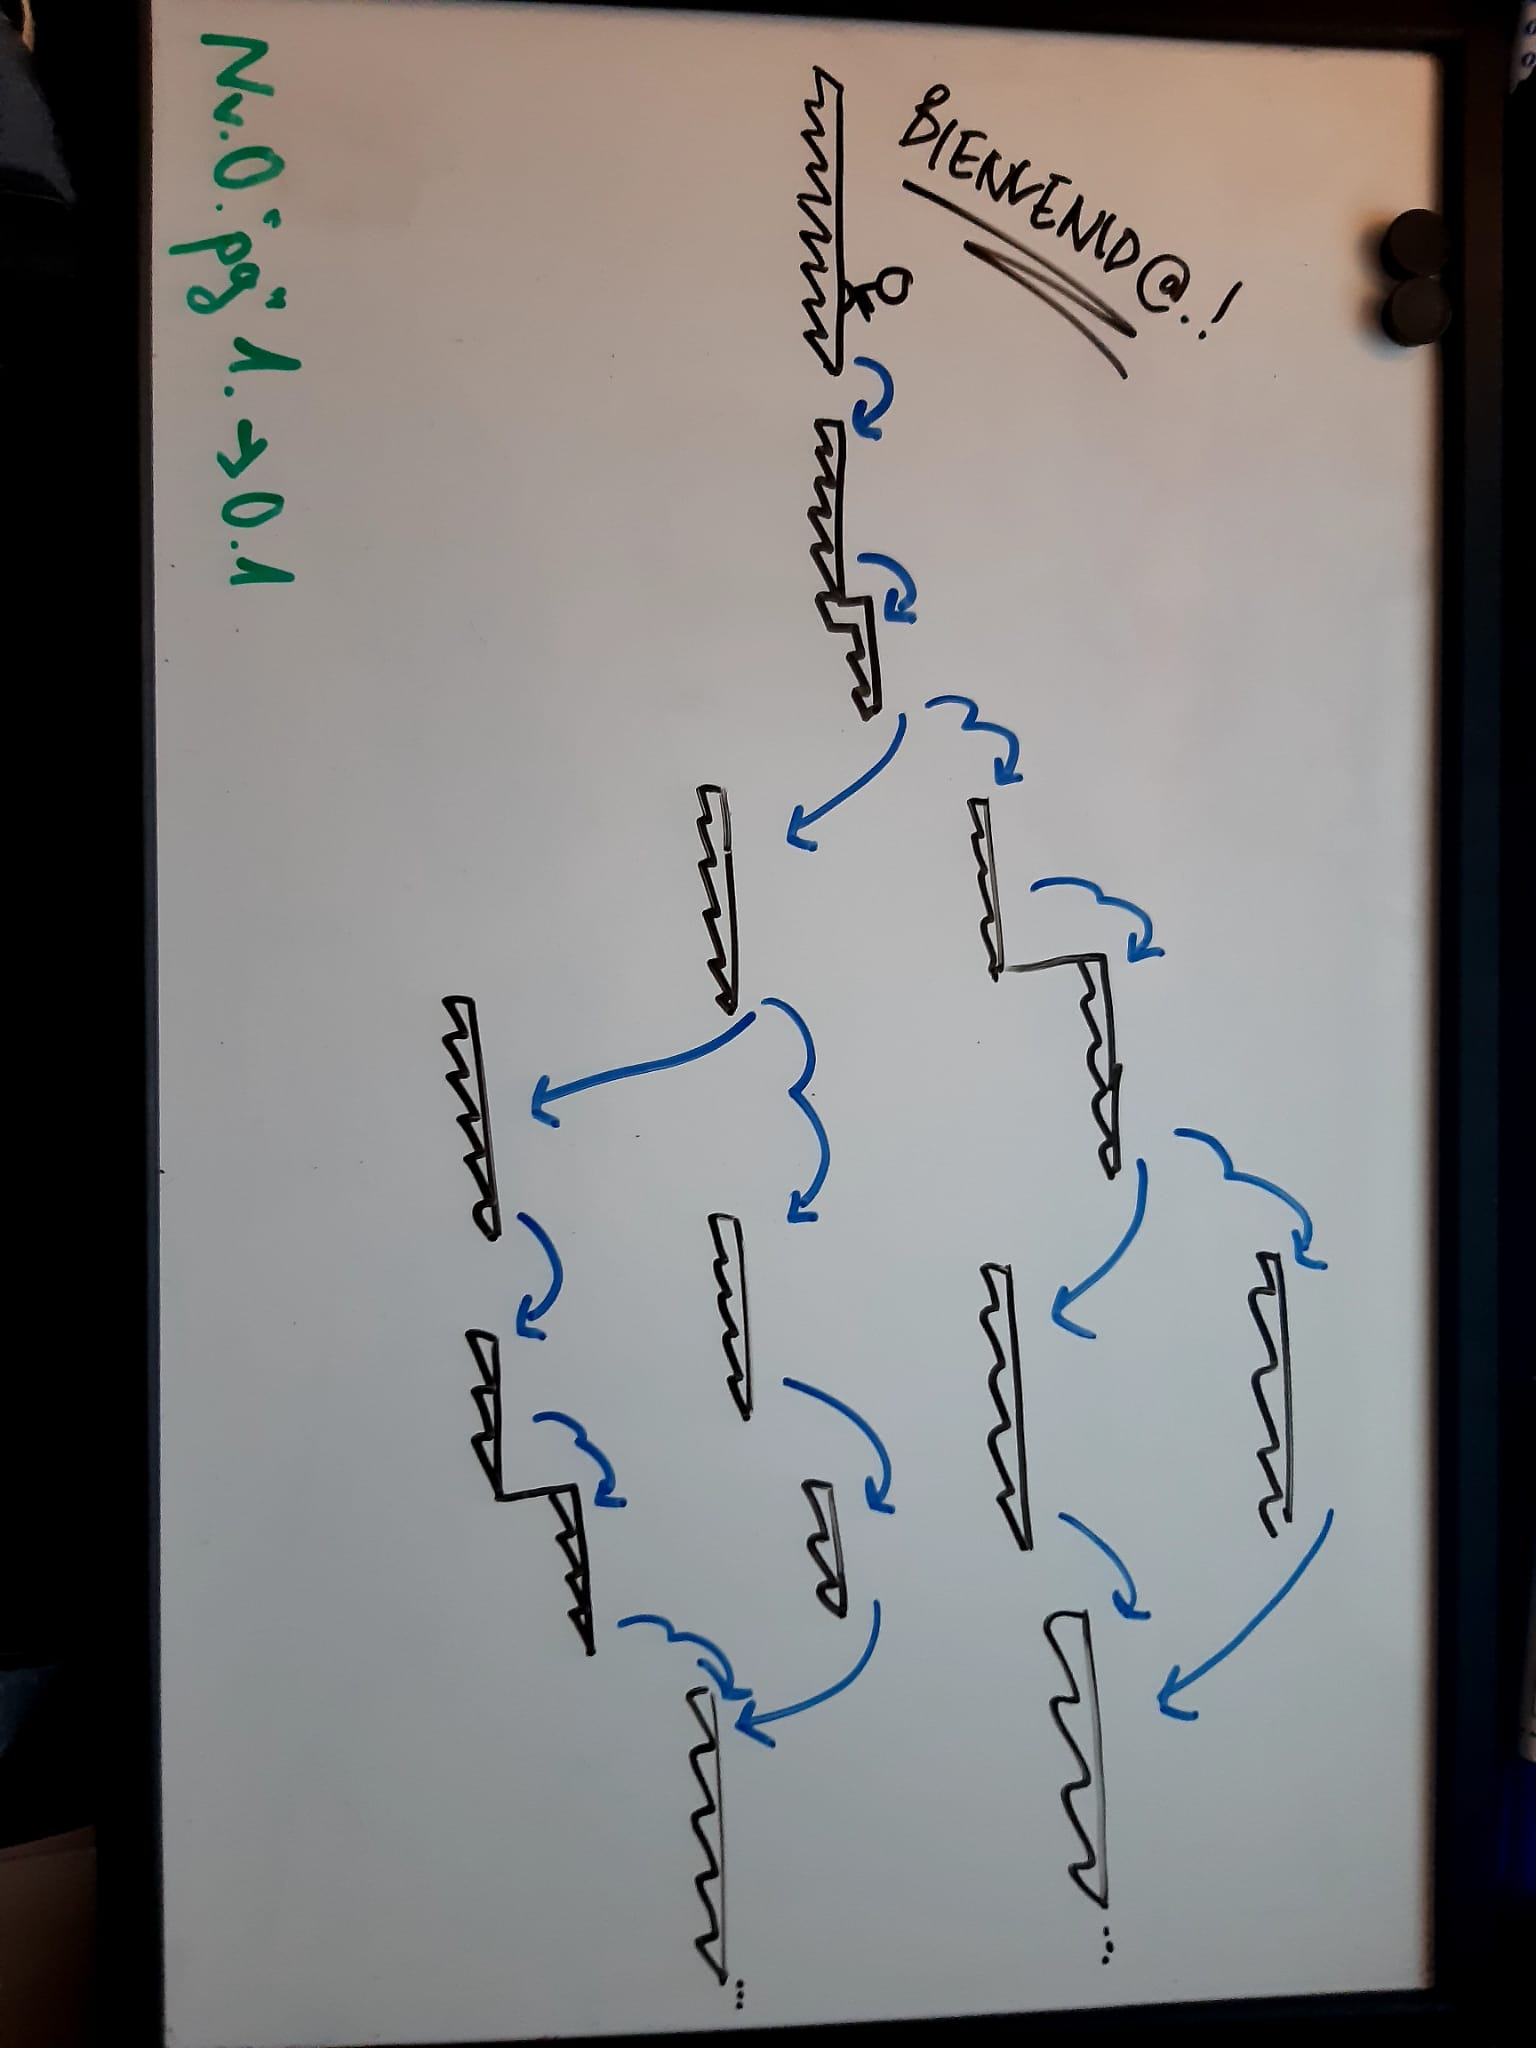 BIENVENID@.!
...
...
Nv.0."pg" 1.→0.1